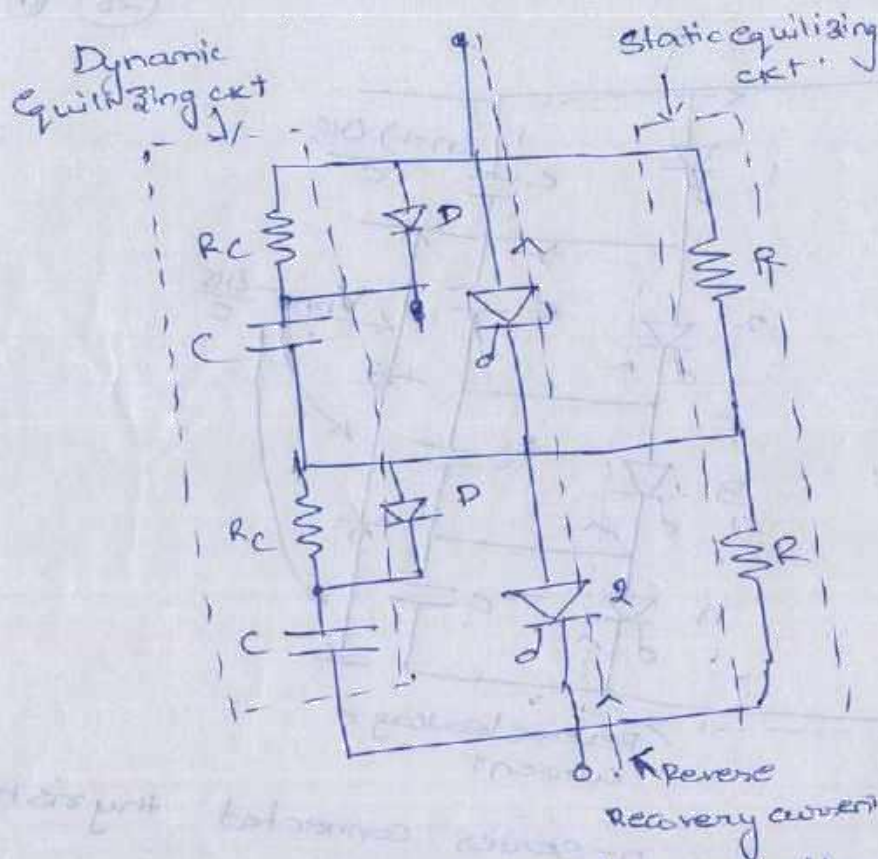 Dynamic
Equilizing ckt
Static equilizing
ckt.
Rc
D
C
1
R
Rc
D
C
2
R
Reverse
Recovery current